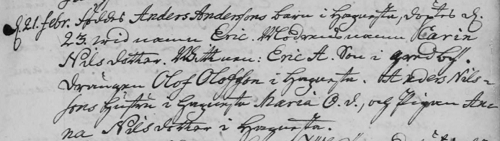 d. 21. febr. föddes Anders Anderssons barn i Hagesta, döptes d.
23. wid namn Eric. Modrens namn Karin
Nils dotter. Wittnen: Eric A. Son i
Drängen Olof Olofsson i Hagesta. Anders Nils-
sons Hustru i Hagesta Maria O. d., och Pigan An-
na Nils dotter i Hagesta.